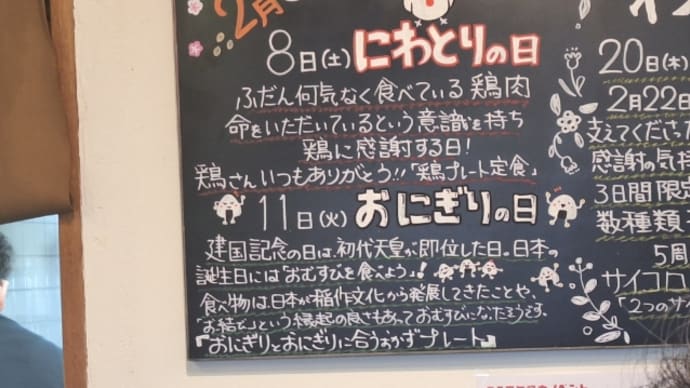 2月
8日(土) にわとりの日
ふだん何気なく食べている鶏肉
命をいただいているという意識を持ち
鶏に感謝する日!
鶏さんいつもありがとう!!「鶏プレート定食」
11日(火) おにぎりの日
建国記念の日は、初代天皇が即位した日。日本の
誕生日には"おむすびを食べよう"!
食べ物は、日本が稲作文化から発展してきたことや、
お結びという縁起の良さもあっておむすびになったそうです。
『おにぎりとおにぎりに合うおかずプレート』
20日(木)
2月22日
支えてくださっ
感謝の気持
3日間限定
数種類
5周
サイコロ
「2つのサイ